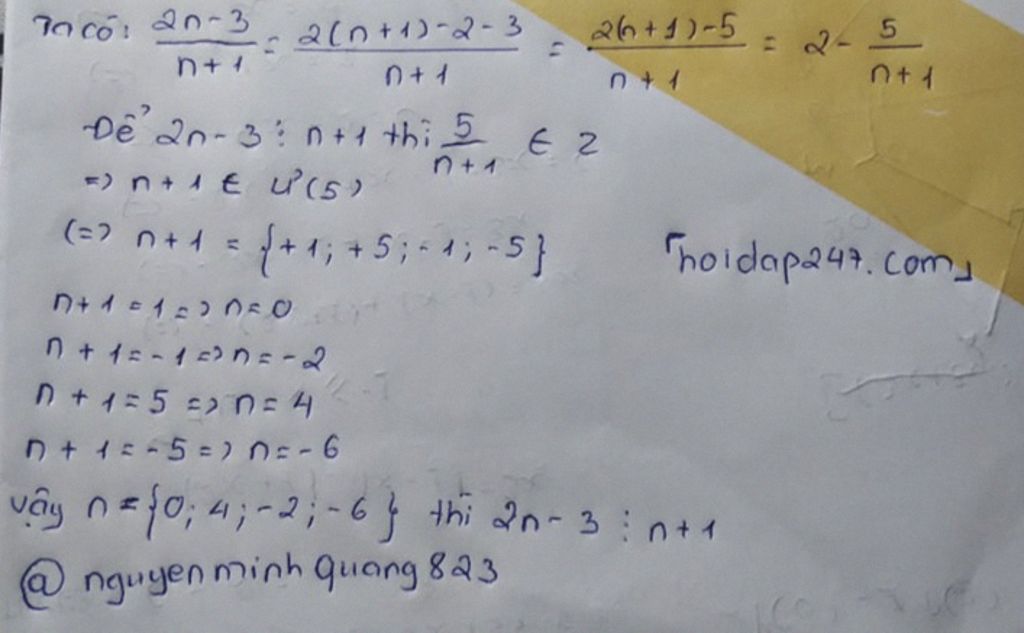 Ta có: \frac{2n-3}{n+1} = \frac{2(n+1)-2-3}{n+1} = \frac{2(n+1)-5}{n+1} = 2 - \frac{5}{n+1}
Để 2n-3 ⋮ n+1 thì \frac{5}{n+1} ∈ Z
=> n+1 ∈ Ư(5)
(=> n+1 = {+1; +5; -1; -5}
「hoidap247.com」
n+1=1=>n=0
n+1=-1=>n=-2
n+1=5=>n=4
n+1=-5=>n=-6
Vậy n={0; 4; -2; -6} thì 2n-3 ⋮ n+1
@nguyenminhquang823